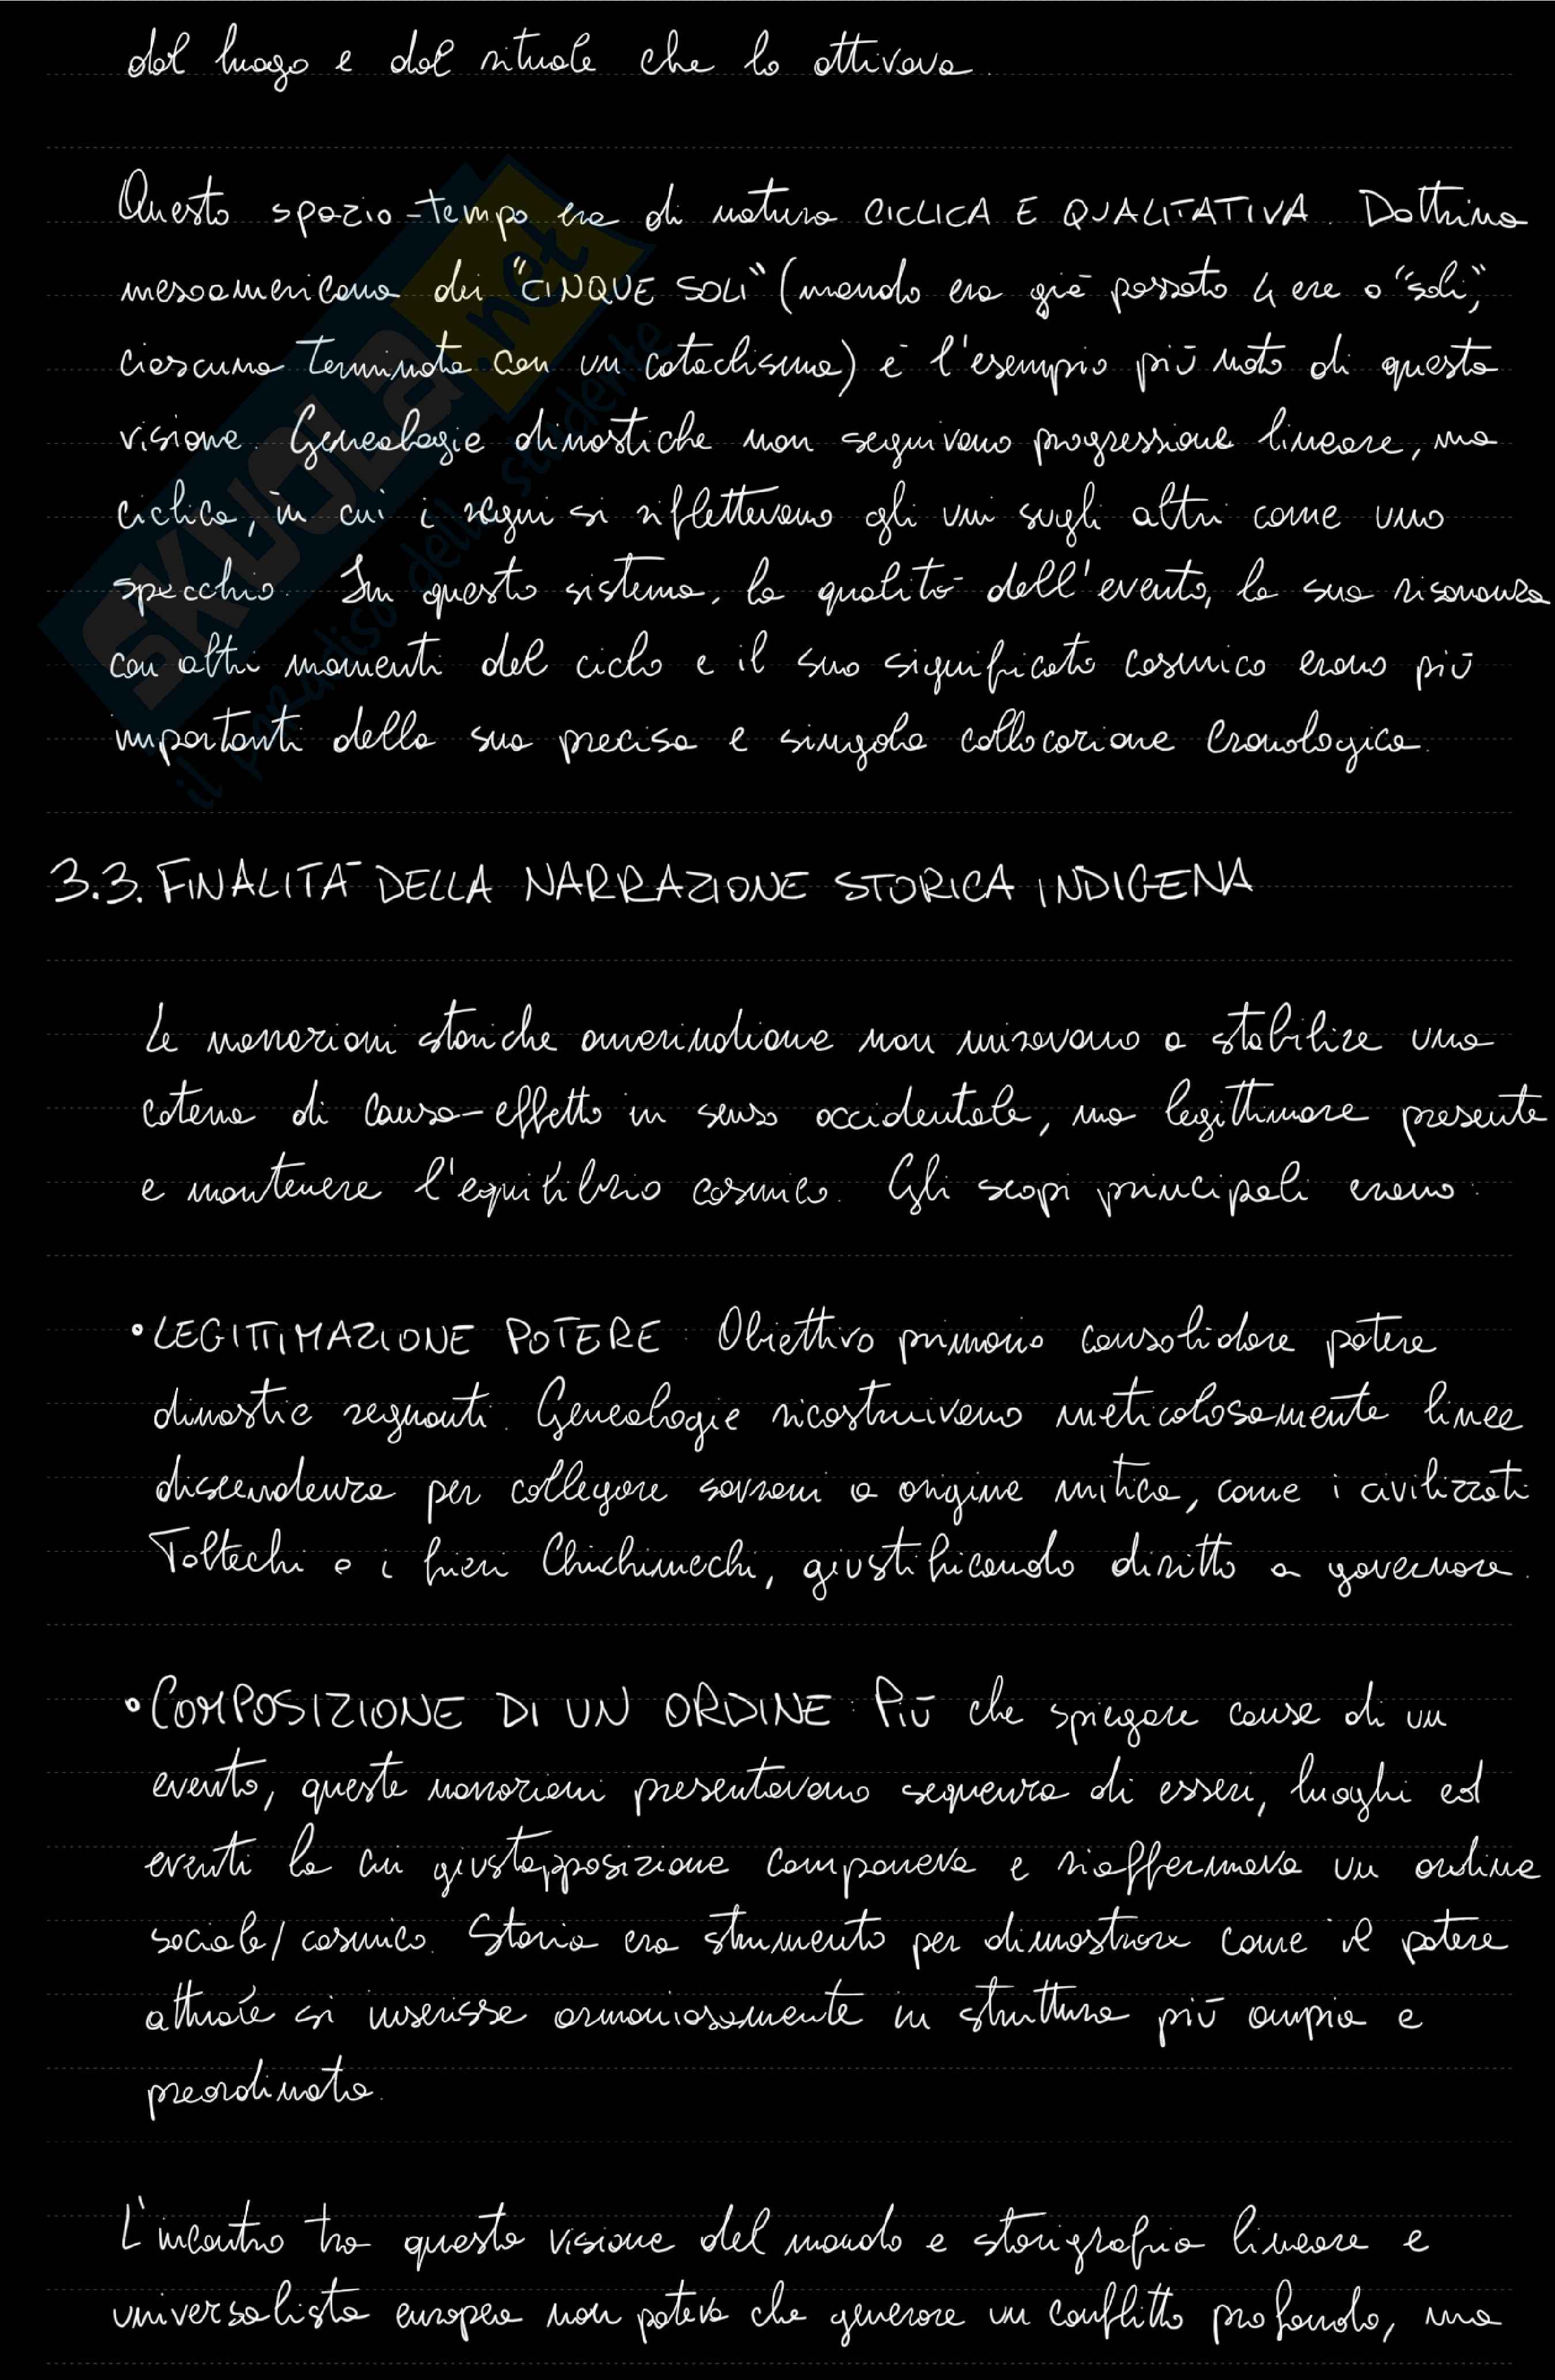 dal luogo e dal rituale che lo attivava.
Questo spazio-tempo era di natura CICLICA E QUALITATIVA. Dottrina
mesoamericana dei "CINQUE SOLI" (mondo era già passato 4 ere o "soli",
ciascuna terminata con un cataclisma) è l'esempio più noto di questa
visione. Genealogie dinastiche non seguivano progressione lineare, ma
ciclica, in cui i regni si riflettevano gli uni sugli altri come uno
specchio. In questo sistema, la qualità dell'evento, la sua risonanza
con altri momenti del ciclo e il suo significato cosmico erano più
importanti della sua precisa e singola collocazione cronologica.
3.3. FINALITÀ DELLA NARRAZIONE STORICA INDIGENA
Le narrazioni storiche amerindiane non miravano a stabilire una
catena di causa-effetto in senso occidentale, ma legittimare presente
e mantenere l'equilibrio cosmico. Gli scopi principali erano:
• LEGITTIMAZIONE POTERE: Obiettivo primario consolidare potere
dinastie regnanti. Genealogie ricostruivano meticolosamente linee
discendenza per collegare sovrani a origine mitica, come i civilizzati
Toltechi o i fieri Chichimechi, giustificando diritto a governare.
• COMPOSIZIONE DI UN ORDINE: Più che spiegare cause di un
evento, queste narrazioni presentavano sequenza di esseri, luoghi ed
eventi la cui giustapposizione componeva e riaffermava un ordine
sociale/cosmico. Storia era strumento per dimostrare come il potere
attuale si inserisse armoniosamente in struttura più ampia e
preordinata.
L'incontro tra questa visione del mondo e storigrafia lineare e
universalista europea non poteva che generare un conflitto profondo, ma
SKUOLA.net
il paradiso dello studente